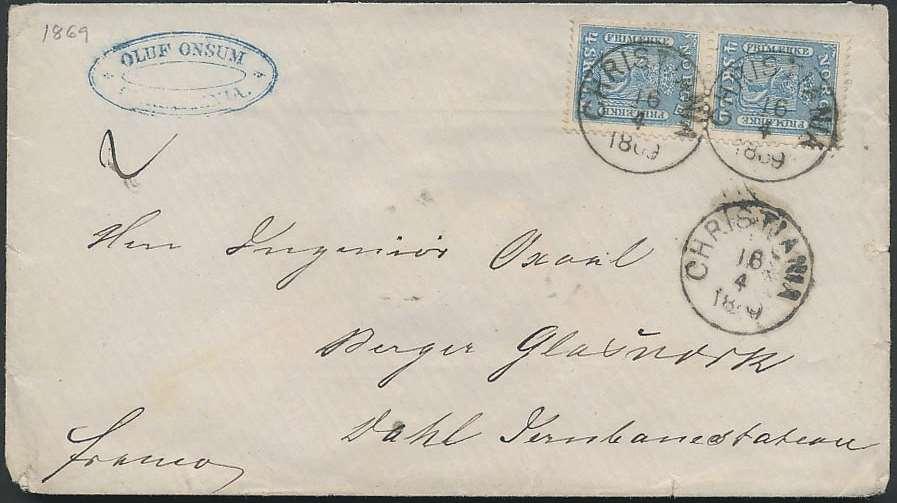 1869
OLUF ONSUM
4 SKILL. FRIMERKE NORGE FRIMERKE
4 SKILL. FRIMERKE NORGE FRIMERKE
CHRISTIANIA
16
4
1869
CHRISTIANIA
16
4
1869
CHRISTIANIA
16
4
1869
Herr Ingeniör Oxaal
Berger Glasværk
Dahl Jernbanestation
franco